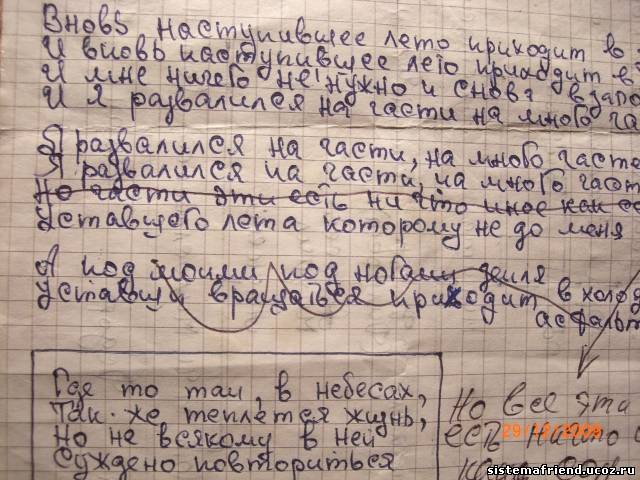 Вновь наступившее лето приходит в
И вновь наступившее лето приходит в
И мне ничего не нужно и снова в запо
И я развалился на части на много ча
Я развалился на части, на много часте
Я развалился на части, на много част
Но части эти есть ни что иное как ес
Уставшего лета которому не до меня
А под моими под ногами земля
Уставши вращаться приходит в холод
асфальт
Где то там, в небесах,
Так же теплется жизнь,
Но не всякому в ней
Суждено повториться
Но все эти
есть ничто
sistemafriend.ucoz.ru